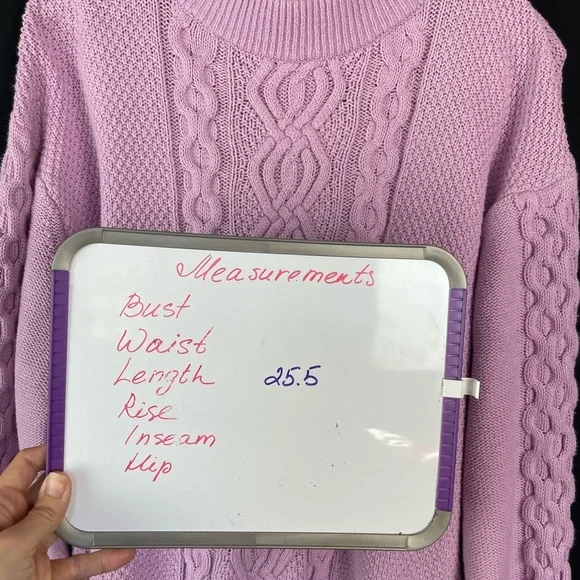 Measurements
Bust
Waist
Length 25.5
Rise
Inseam
Hip